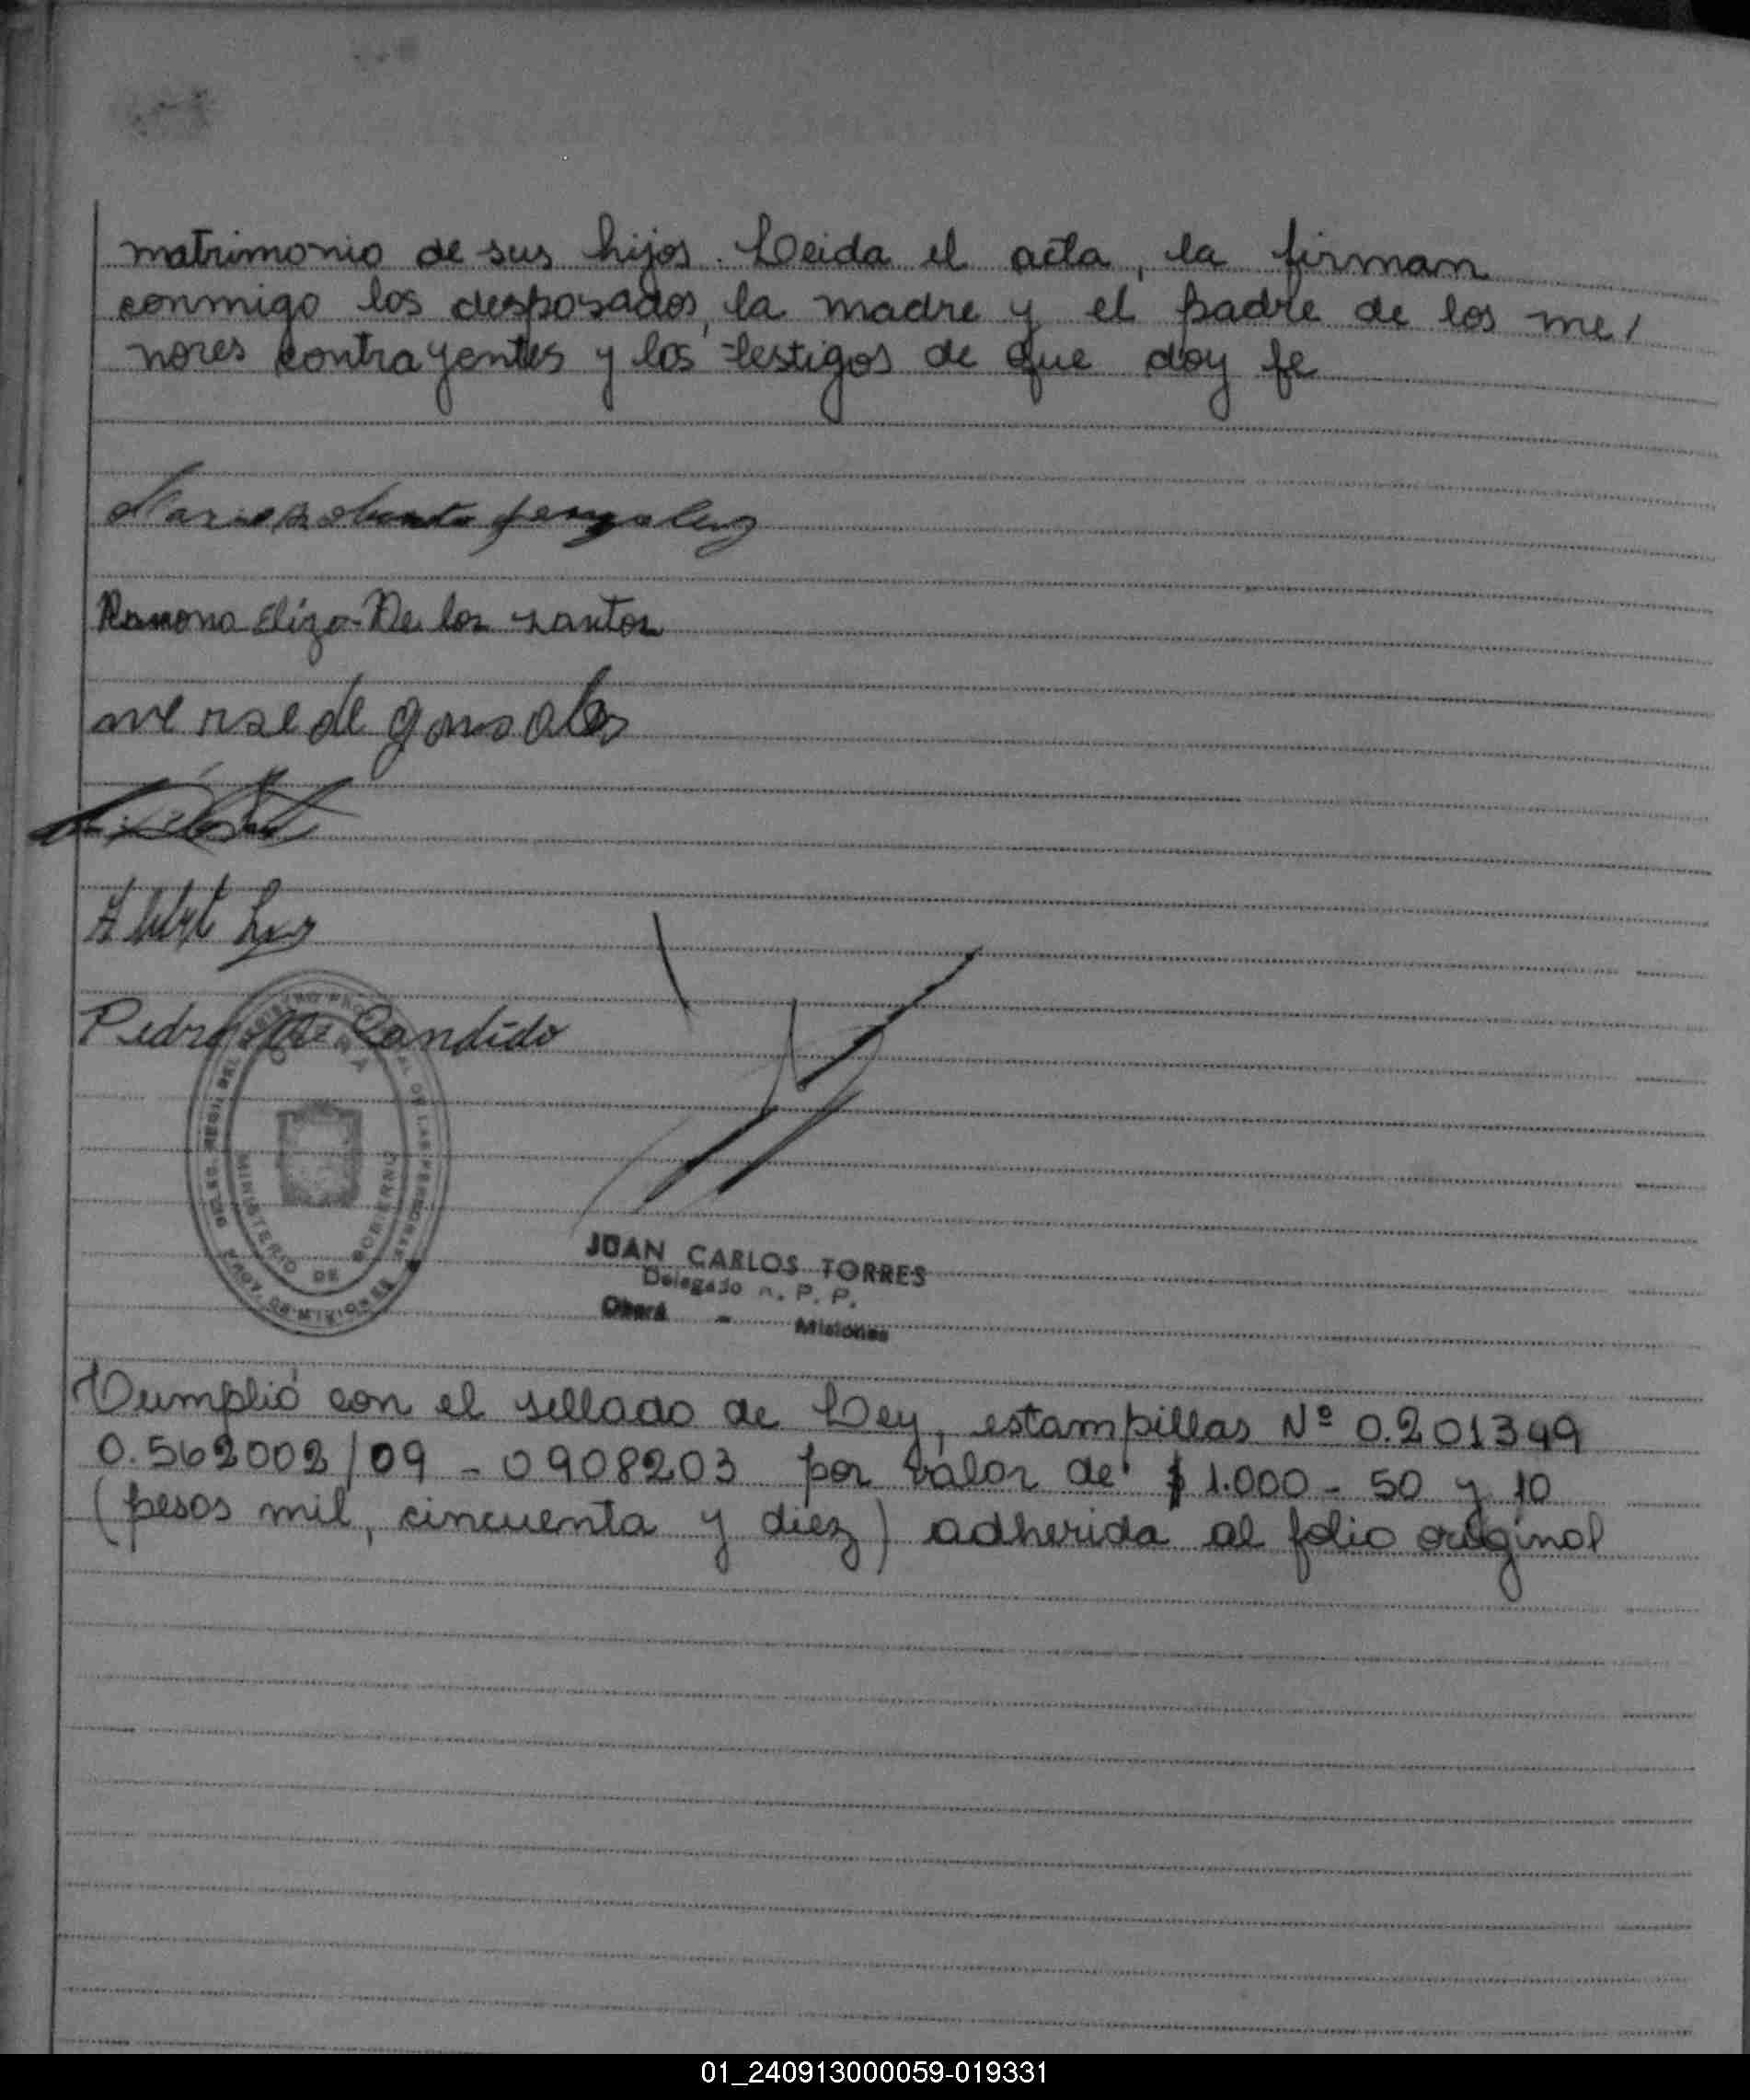 matrimonio de sus hijos. Leida el acta, la firman
conmigo los desposados, la madre y el padre de los me/
nores contrayentes y los testigos de que doy fe
Ramona Eliza De los Santos
mersede gonsales
Pedro Candido
MINISTERIO DE GOBIERNO
PROV. DE MISIONES
JUAN CARLOS TORRES
Delegado R. P. P.
Oberá - Misiones
Cumplió con el sellado de Ley, estampillas Nº 0.201349
0.562002/09 - 0908203 por valor de $ 1.000 - 50 y 10
(pesos mil, cincuenta y diez) adherida al folio original
01_240913000059-019331